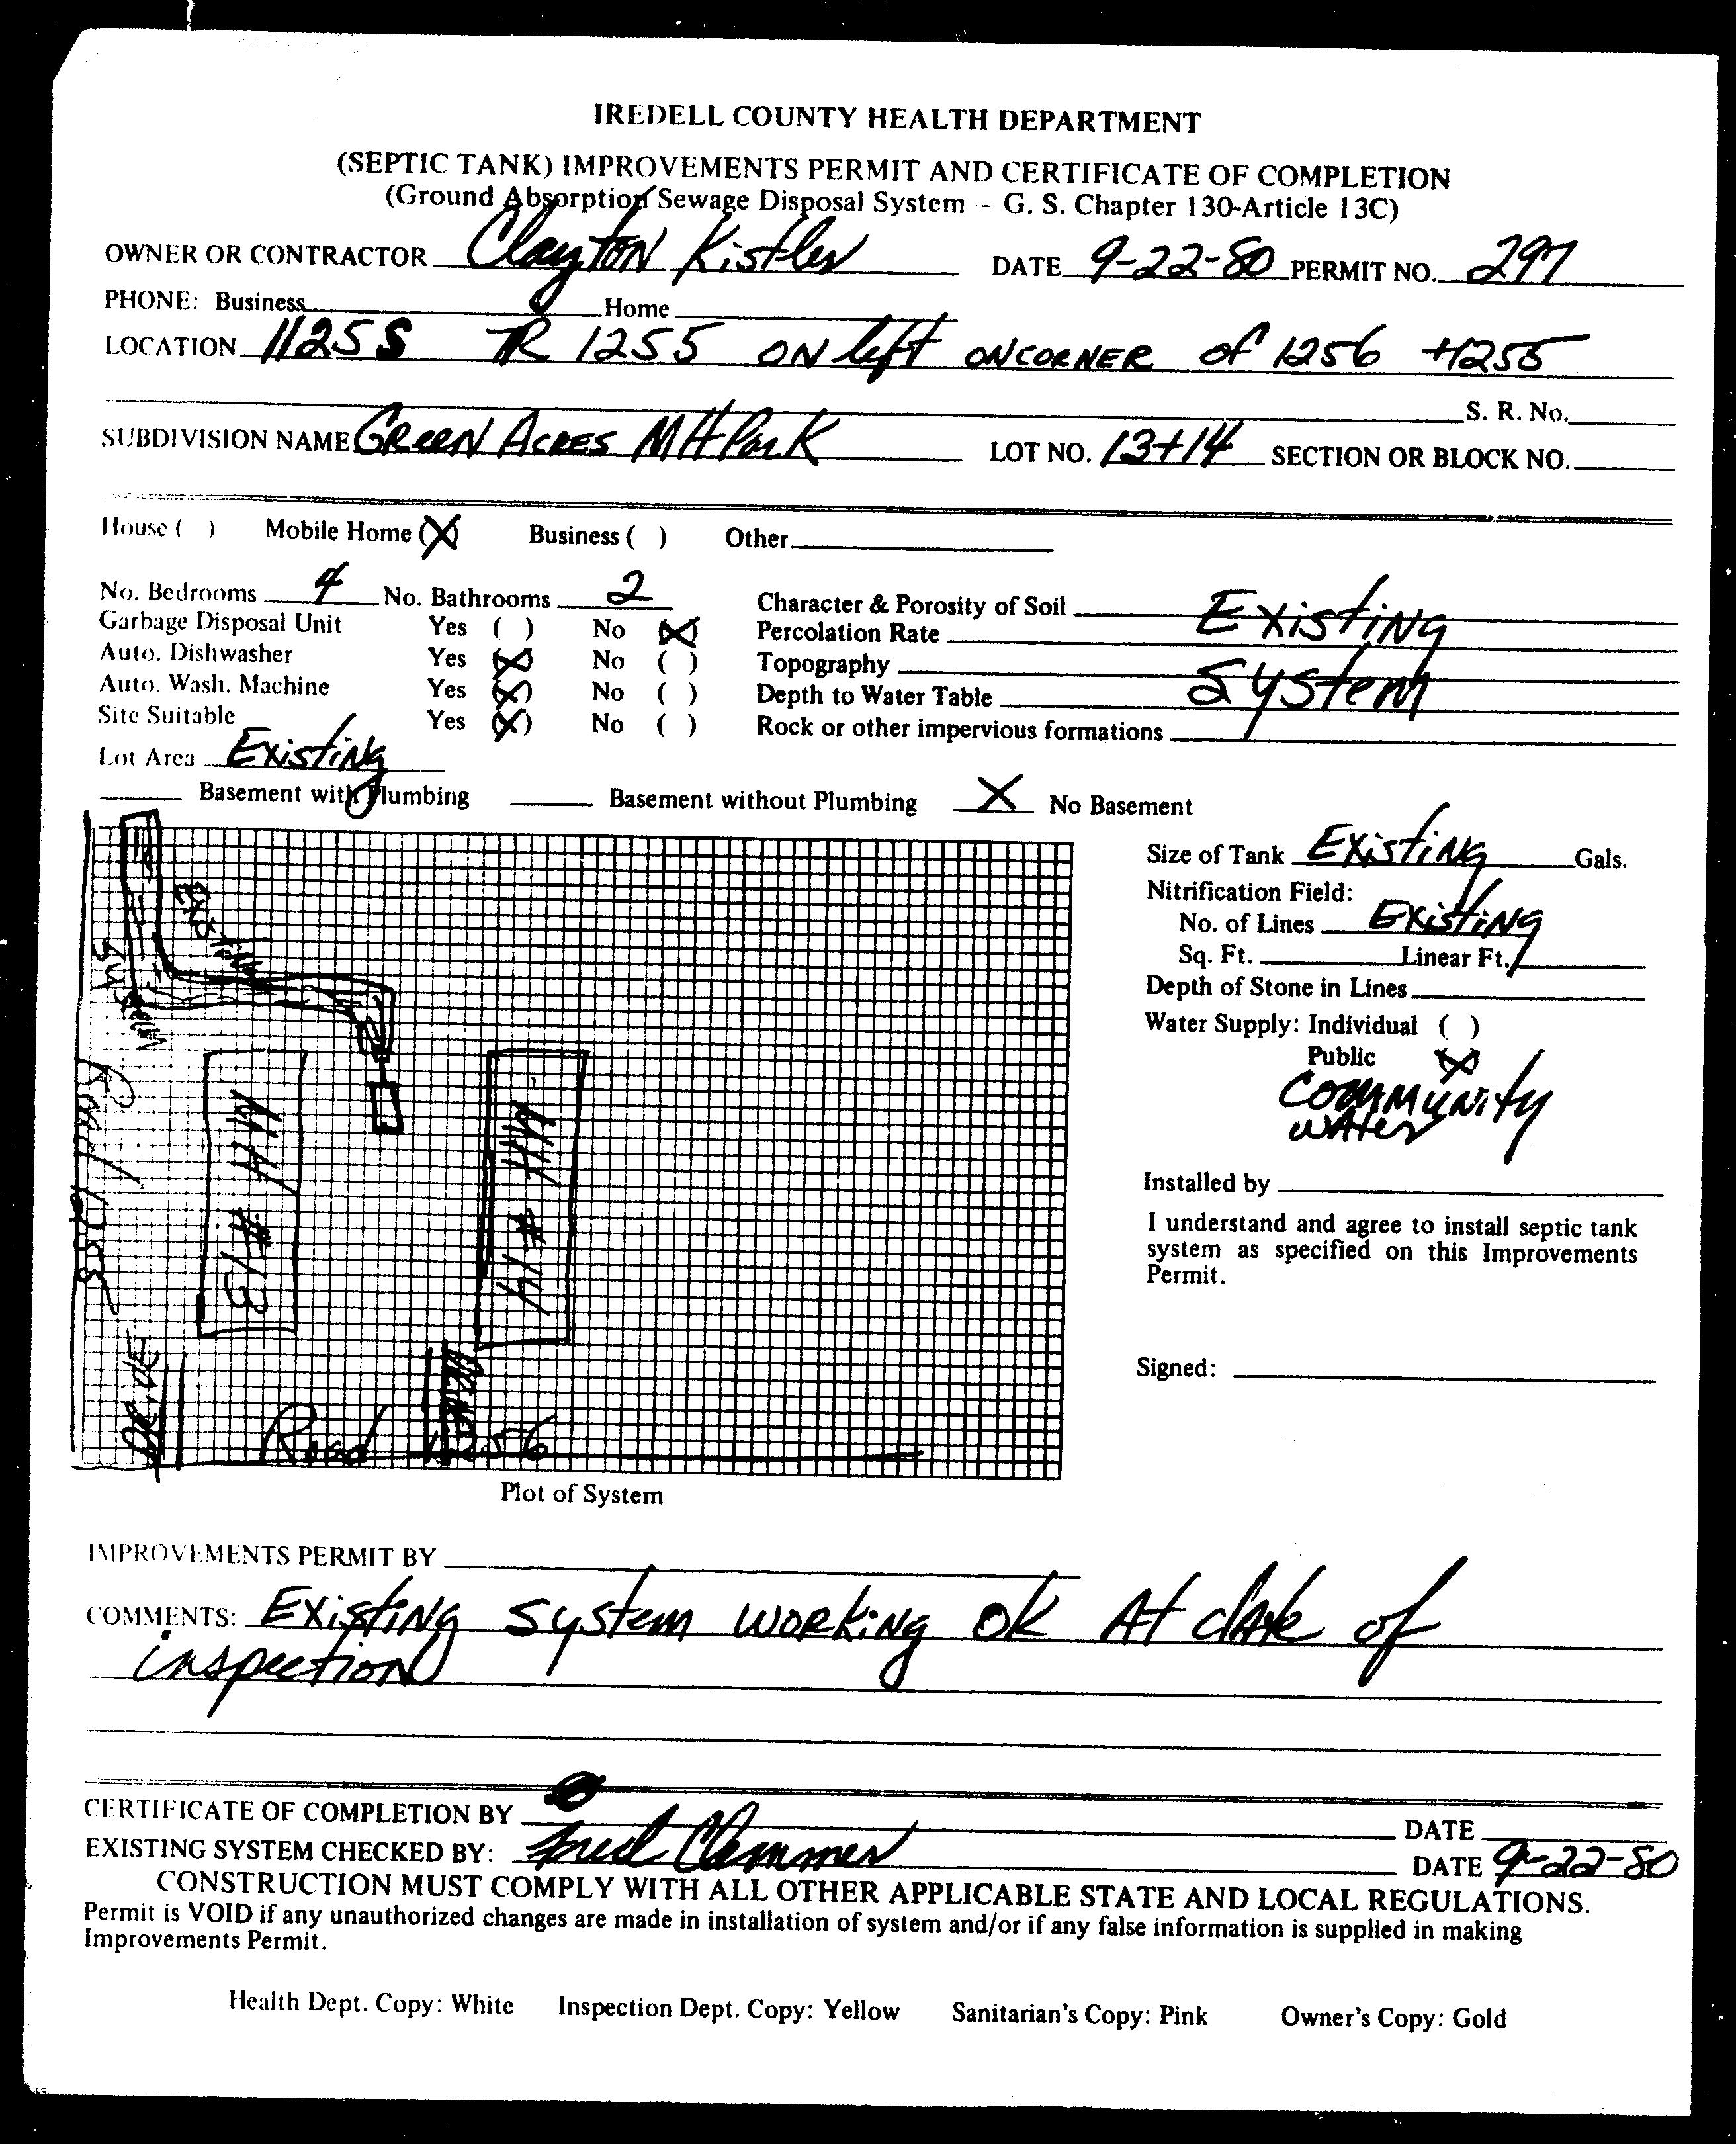 IREDELL COUNTY HEALTH DEPARTMENT
(SEPTIC TANK) IMPROVEMENTS PERMIT AND CERTIFICATE OF COMPLETION
(Ground Absorption Sewage Disposal System – G. S. Chapter 130-Article 13C)
OWNER OR CONTRACTOR Clayton Kistler DATE 9-22-80 PERMIT NO. 297
PHONE: Business Home
LOCATION 1125 S TR 1255 ON left ON CORNER of 1256 + 1255
S. R. No.
SUBDIVISION NAME GREEN ACRES MH Park LOT NO. 13+14 SECTION OR BLOCK NO.
House ( ) Mobile Home (X) Business ( ) Other
No. Bedrooms 4 No. Bathrooms 2 Character & Porosity of Soil Existing
Garbage Disposal Unit Yes ( ) No (X) Percolation Rate
Auto. Dishwasher Yes (X) No ( ) Topography System
Auto. Wash. Machine Yes (X) No ( ) Depth to Water Table
Site Suitable Yes (X) No ( ) Rock or other impervious formations
Lot Area Existing
Basement with Plumbing Basement without Plumbing X No Basement
Size of Tank Existing Gals.
Nitrification Field:
No. of Lines Existing
Sq. Ft. Linear Ft.
Depth of Stone in Lines
Water Supply: Individual ( )
Public (X)
Community
water
Installed by
I understand and agree to install septic tank
system as specified on this Improvements
Permit.
Signed:
Existing
System
Road 1255
MH #13
MH #14
DRIVE
DRIVE
Road 1256
Plot of System
IMPROVEMENTS PERMIT BY
COMMENTS: Existing system working OK At date of
inspection
CERTIFICATE OF COMPLETION BY DATE
EXISTING SYSTEM CHECKED BY: Fred Clemmer DATE 9-22-80
CONSTRUCTION MUST COMPLY WITH ALL OTHER APPLICABLE STATE AND LOCAL REGULATIONS.
Permit is VOID if any unauthorized changes are made in installation of system and/or if any false information is supplied in making
Improvements Permit.
Health Dept. Copy: White Inspection Dept. Copy: Yellow Sanitarian's Copy: Pink Owner's Copy: Gold